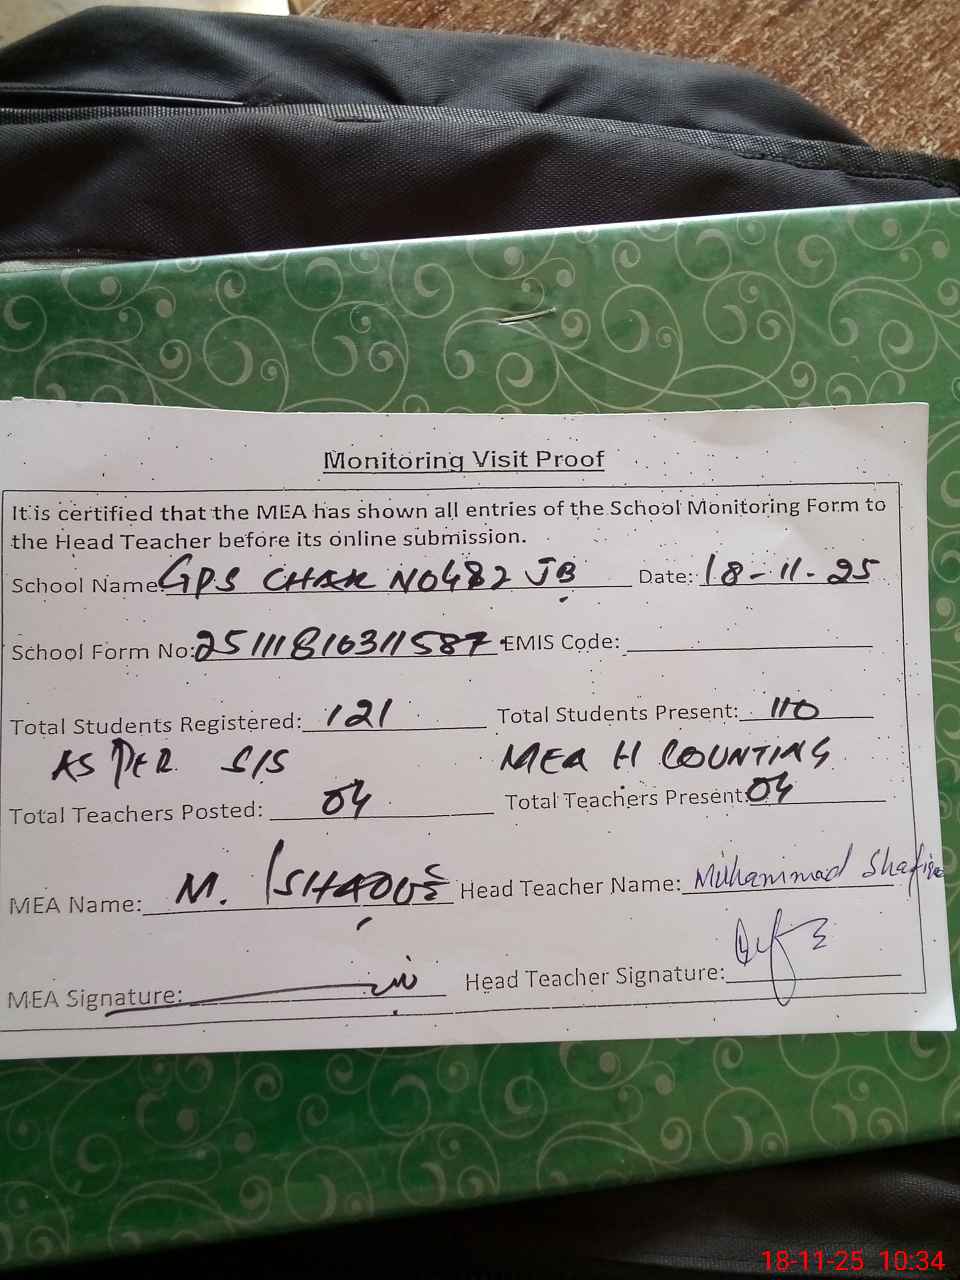 Monitoring Visit Proof
It is certified that the MEA has shown all entries of the School Monitoring Form to
the Head Teacher before its online submission.
School Name: GPS CHAK NO 482 JB Date: 18-11-25
School Form No: 25111816311587 EMIS Code:
Total Students Registered: 121 Total Students Present: 110
AS PER SIS MEA H COUNTING
Total Teachers Posted: 04 Total Teachers Present: 04
MEA Name: M. Head Teacher Name: Muhammad Shafique
MEA Signature: Head Teacher Signature:
18-11-25 10:34